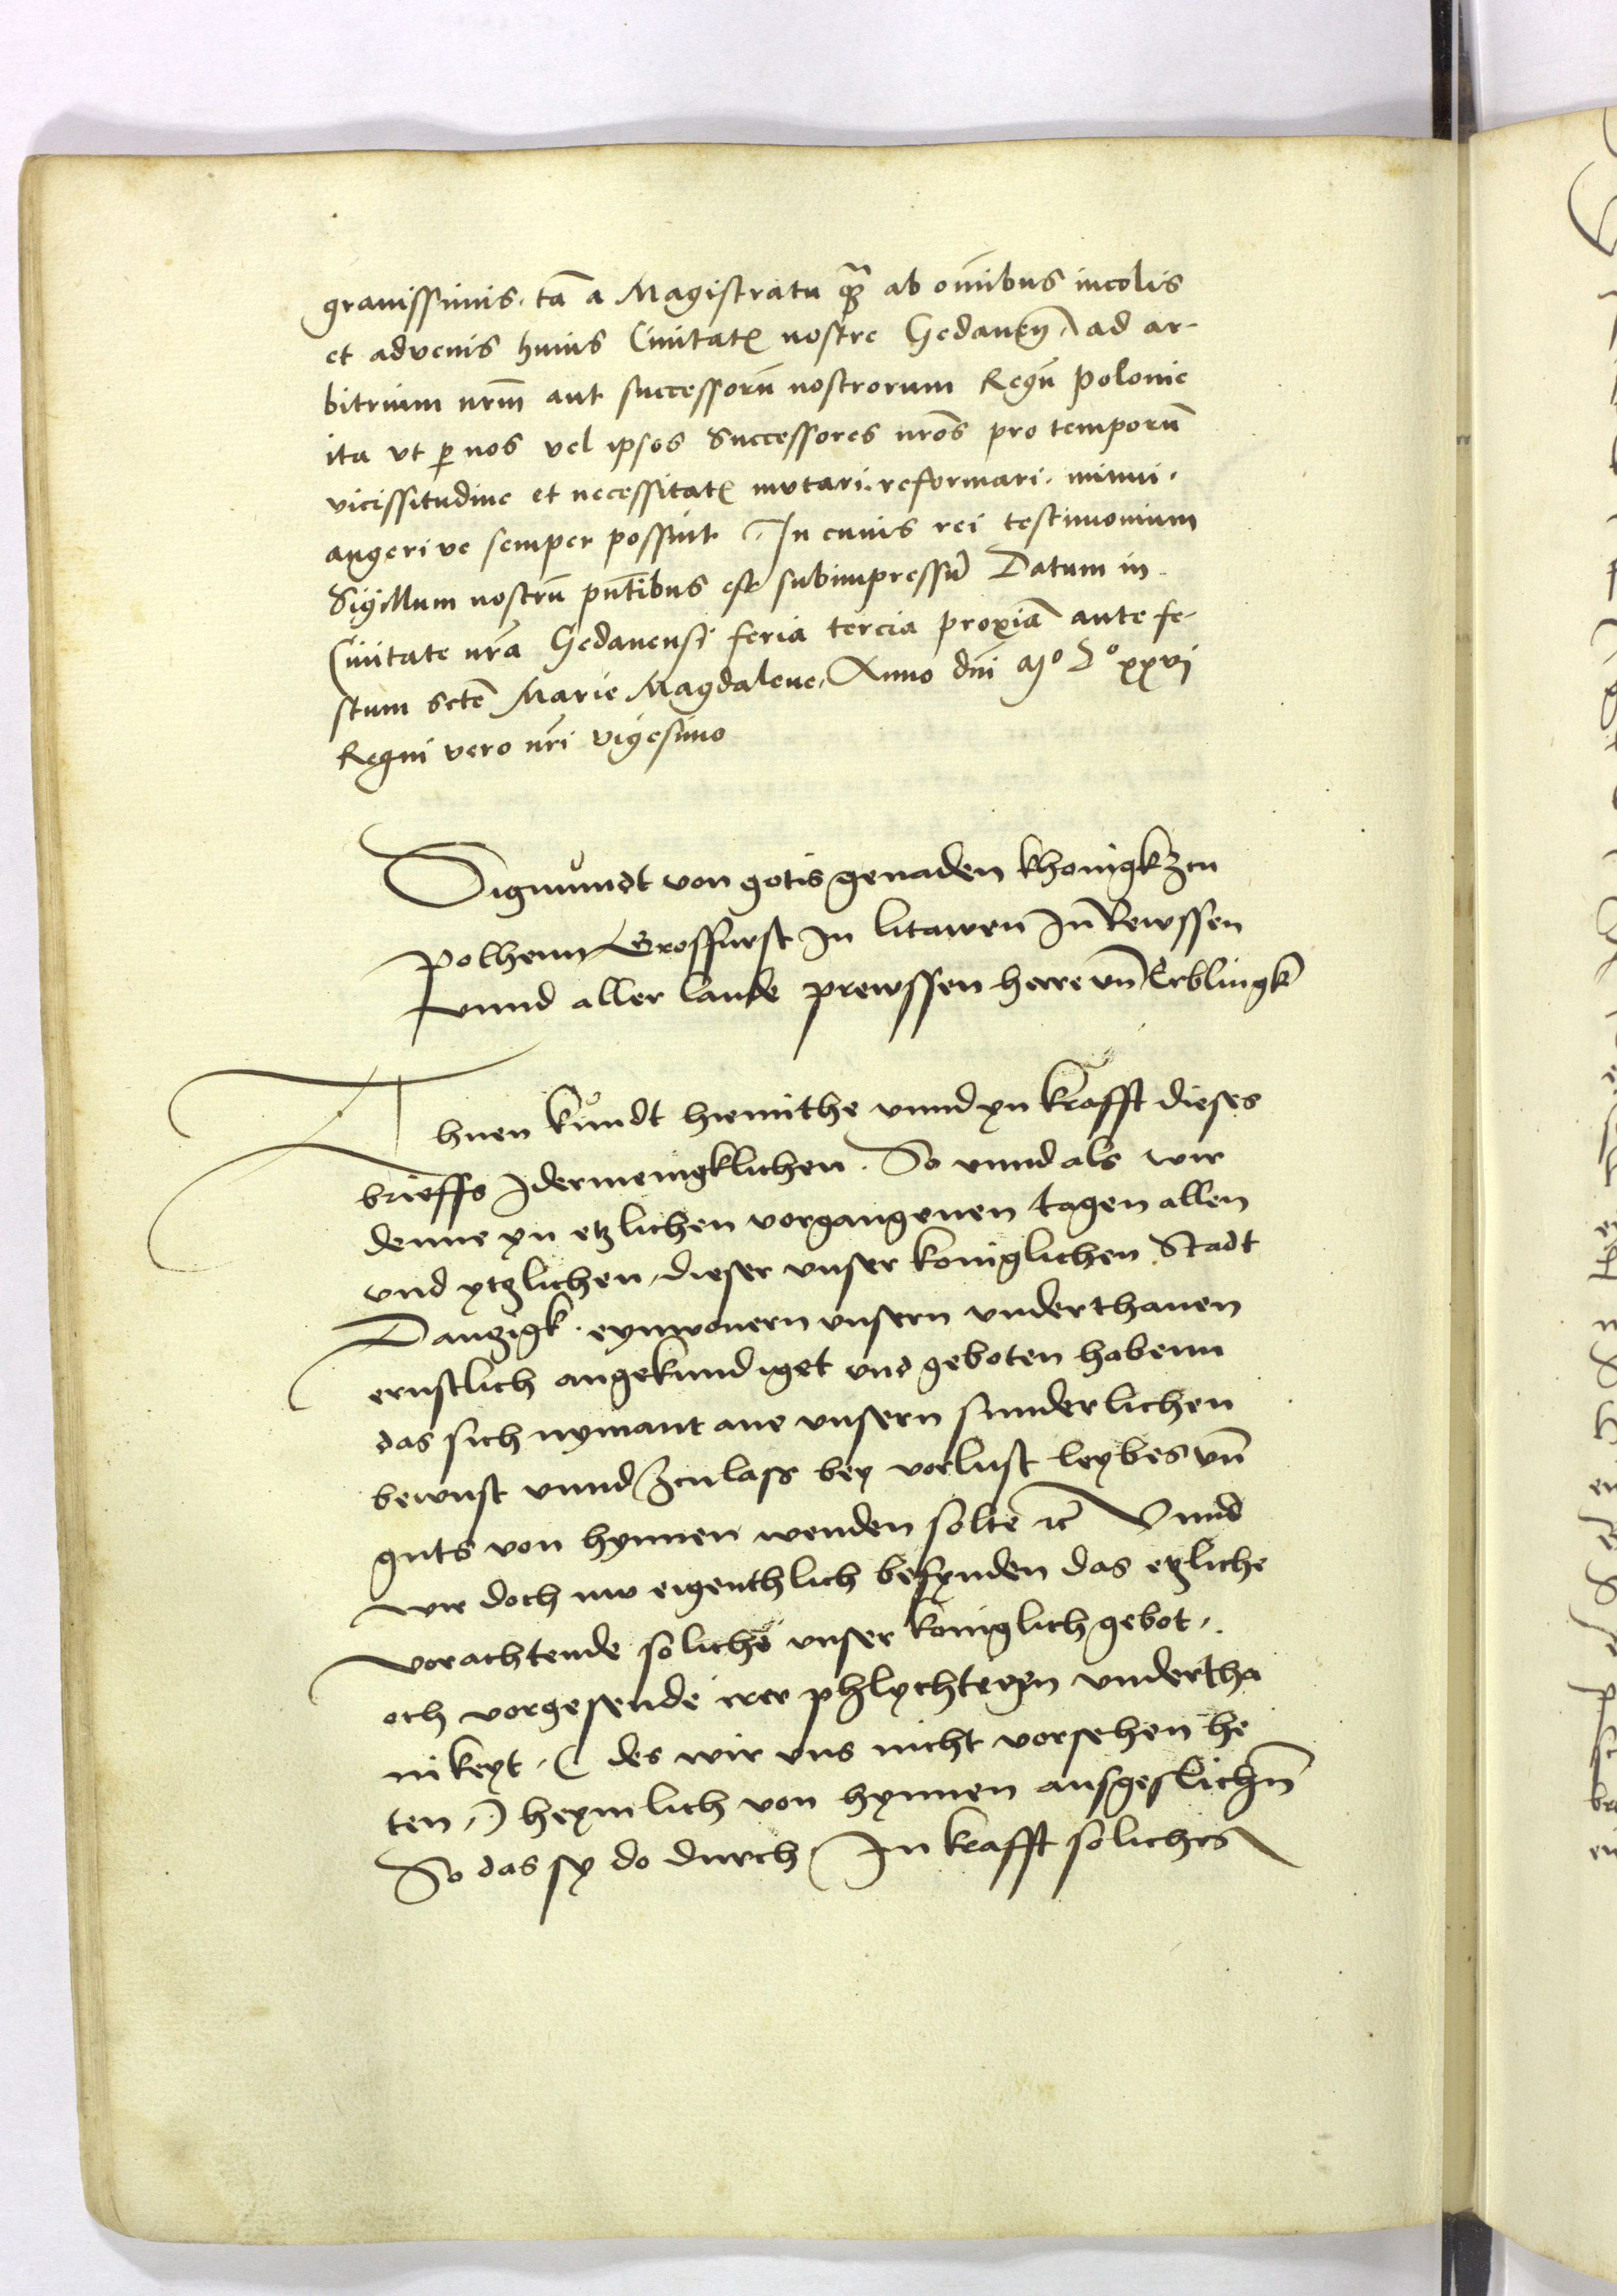 grauissimis. tā a Magistratu q̄ȝ ab om̄ibus incolis
et advenis huius Ciuitatꝭ nostre Gedaneñ ad ar-
bitrium nrm̄ aut successorū nostrorum Regū Polonie
ita vt ꝑ nos vel ipsos Successores nros̄ pro temporū
vicissitudine et necessitatꝭ mutari. reformari. minui.
augeri ve semper possint. In cuius rei testimonium
Sigillum nostrū pn̄tibus est subimpressū Datum in
Ciuitate nrā Gedanensi feria tercia proxīa ante fe-
stum Sctē Marie Magdalene, Anno dn̄i Mº Dº xxvi
Regni vero nrī vigesimo
Sigmundt von gotis genaden khonigk zcu
Polhenn Grosfurst In litawen In Rewssen
vnnd aller lande prewssen herre vn̄ Erblingk
Thuen kundt hiemithe vnnd yn krafft dieses
brieffs Idermenigklichen. So vnnd als wir
denne yn etzlichen vorgangenen tagen allen
vnd ytzlichen, dieser vnser koniglichen Stadt
Danzigk. eynwonern vnsern vnderthanen
ernstlich angekundiget vnd geboten habenn
das sich nymant ane vnsern sunderlichen
bewust vnnd zculass bey vorlust leybes vn̄
guts von hynnen wenden solte ꝛc̄ Vnnd
wir doch nw eigenthlich befynden das etzliche
vorachtende soliche vnser koniglich gebot,.
och vorgesende irer phlychtegen vndertha
nikeyt, ( des wir vns nicht vorsehen he
ten,) heymlich von hynnen ausgeslichn̄
So das sy do durch In krafft soliches